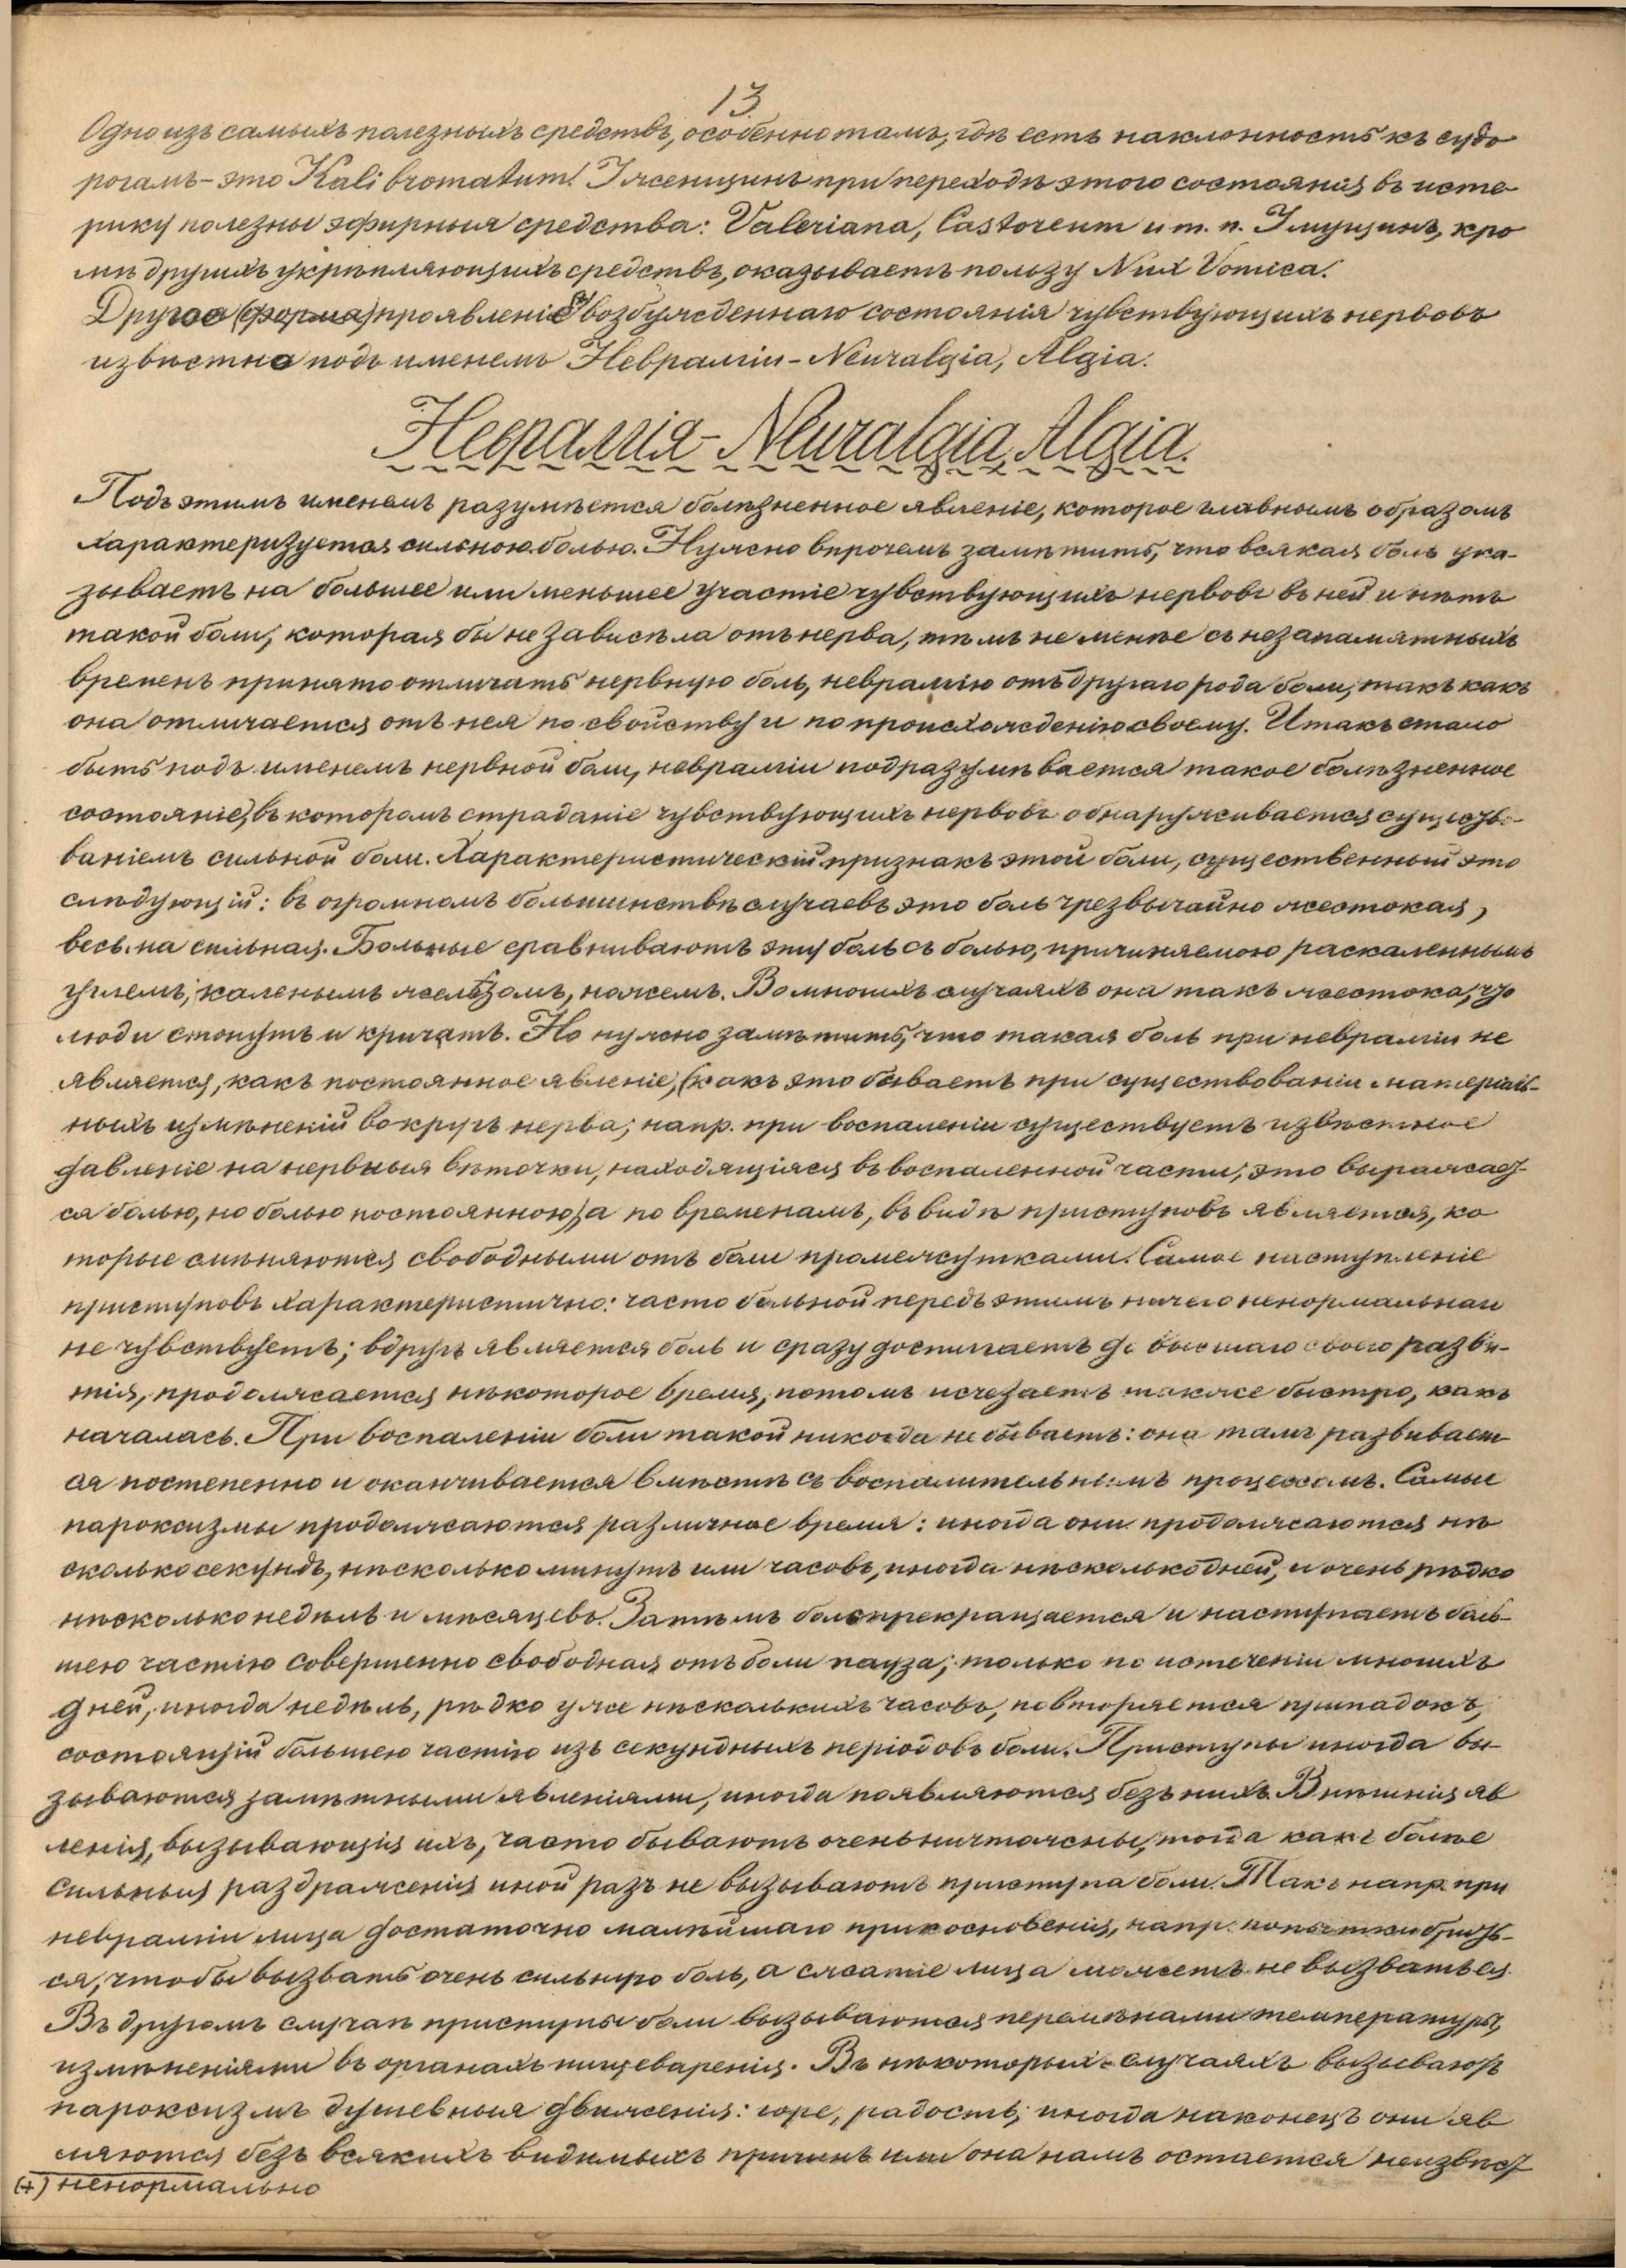 13.
Одно изъ самыхъ полезныхъ средствъ, особенно тамъ, гдѣ есть наклонность къ судо
рогамъ - это Kali bromatum! У женщинъ при переходѣ этого состоянія въ исте
рику полезны эфирныя средства: Valeriana, Castoreum и т. п. У мущинъ, кро
мѣ другихъ укрѣпляющихъ средствъ, оказываетъ пользу Nux Vomica.
Другое (форма) проявленіе возбужденнаго состоянія чувствующихъ нервовъ
извѣстно подъ именемъ Невралгіи - Neuralgia, Algia.
Невралгія - Neuralgia, Algia.
Подъ этимъ именемъ разумѣется болѣзненное явленіе, которое главнымъ образомъ
характеризуется сильною болью. Нужно впрочемъ замѣтить, что всякая боль ука-
зываетъ на большее или меньшее участіе чувствующихъ нервовъ въ ней и нѣтъ
такой боли, которая бы не зависѣла отъ нерва, тѣмъ не менѣе съ незапамятныхъ
временъ принято отличать нервную боль, невралгію отъ другаго рода боли, такъ какъ
она отличается отъ нея по свойству и по происхожденію своему. Итакъ стало
быть подъ именемъ нервной боли, невралгіи подразумѣвается такое болѣзненное
состояніе, въ которомъ страданіе чувствующихъ нервовъ обнаруживается существо-
ваніемъ сильной боли. Характеристическій признакъ этой боли, существенный это
слѣдующій: въ огромномъ большинствѣ случаевъ это боль чрезвычайно жестокая,
весьма сильная. Больные сравниваютъ эту боль съ болью, причиняемою раскаленнымъ
углемъ, каленымъ желѣзомъ, ножемъ. Во многихъ случаяхъ она такъ жестока, что
люди стонутъ и кричатъ. Но нужно замѣтить, что такая боль при невралгіи не
является, какъ постоянное явленіе, (какъ это бываетъ при существованіи матеріаль-
ныхъ измѣненій вокругъ нерва; напр. при воспаленіи существуетъ извѣстное
давленіе на нервныя вѣточки, находящіяся въ воспаленной части, это выражает-
ся болью, но болью постоянною), а по временамъ, въ видѣ приступовъ является, ко
торые смѣняются свободными отъ боли промежутками. Самое наступленіе
приступовъ характеристично: часто больной передъ этимъ ничего ненормальнаго
не чувствуетъ; вдругъ является боль и сразу достигаетъ до высшаго своего разви-
тія, продолжается нѣкоторое время, потомъ исчезаетъ также быстро, какъ
началась. При воспаленіи боли такой никогда не бываетъ: она тамъ развивает
ся постепенно и оканчивается вмѣстѣ съ воспалительнымъ процессомъ. Самые
пароксизмы продолжаются различное время: иногда они продолжаются нѣ
сколько секундъ, нѣсколько минутъ или часовъ, иногда нѣсколько дней, и очень рѣдко
нѣсколько недѣль и мѣсяцевъ. Затѣмъ боль прекращается и наступаетъ боль-
шею частію совершенно свободная отъ боли пауза; только по истеченіи многихъ
дней, иногда недѣль, рѣдко уже нѣсколькихъ часовъ, повторяется припадокъ,
состоящій большею частію изъ секундныхъ періодовъ боли. Приступы иногда вы-
зываются замѣтными явленіями, иногда появляются безъ нихъ. Внѣшнія яв
ленія, вызывающія ихъ, часто бываютъ очень ничтожны, тогда какъ болѣе
сильныя раздраженія иной разъ не вызываютъ приступа боли. Такъ напр. при
невралгіи лица достаточно малѣйшаго прикосновенія, напр. попытки брить-
ся, чтобы вызвать очень сильную боль, а сжатіе лица можетъ не вызвать ея.
Въ другомъ случаѣ приступы боли вызываются перемѣнами температуры,
измѣненіями въ органахъ пищеваренія. Въ нѣкоторыхъ случаяхъ вызываютъ
пароксизмъ душевныя движенія: горе, радость; иногда наконецъ они яв
ляются безъ всякихъ видимыхъ причинъ или она намъ остается неизвѣст
(+) ненормально